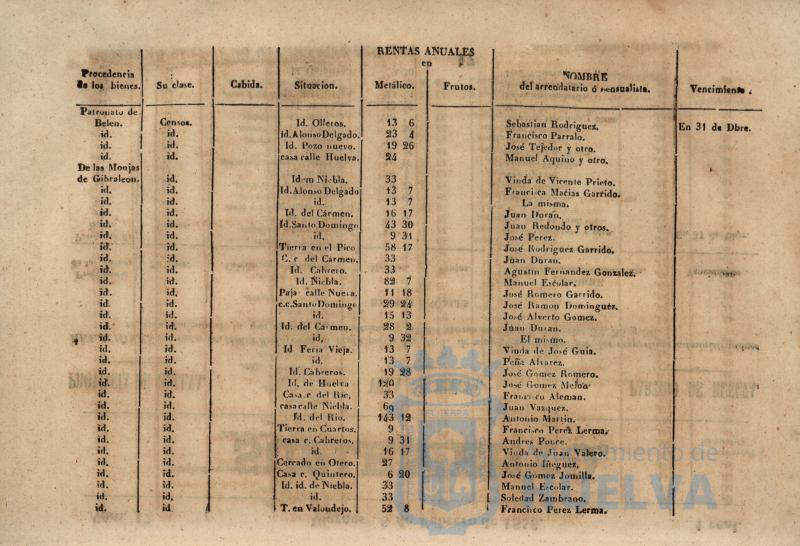 RENTAS ANUALES
en
Procedencia de los bienes. Su clase. Cabida. Situacion. Metálico. Frutos. NOMBRE del arrendatario ó censualista. Vencimiento.
Patronato de
Belen. Censos. Id. Olleros. 13 6 Sebastian Rodriguez. En 31 de Dbre.
id. id. id. Alonso Delgado. 23 4 Francisco Parralo.
id. id. Id. Pozo nuevo. 19 26 José Tejedor y otro.
id. id. casa calle Huelva. 24 Manuel Aquino y otro.
De las Monjas
de Gibraleon. id. Idem Niebla. 33 Viuda de Vicente Prieto.
id. id. Id. Alonso Delgado 13 7 Francisca Macias Garrido.
id. id. id. 13 7 La misma.
id. id. Id. del Cármen. 16 17 Juan Duran.
id. id. Id. Santo Domingo 43 30 Juan Redondo y otros.
id. id. id. 9 31 José Perez.
id. id. Tierra en el Pico 58 17 José Rodriguez Garrido.
id. id. C. c del Cármen. 33 Juan Duran.
id. id. Id. Cabrero. 33 Agustin Fernandez Gonzalez.
id. id. Id. Niebla. 82 7 Manuel Escolar.
id. id. Paja calle Nueva. 11 18 José Romero Garrido.
id. id. c.c. Santo Domingo 29 24 José Ramon Dominguez.
id. id. id. 15 13 José Alverto Gomez.
id. id. Id. del Cármen. 28 2 Juan Duran.
id. id. id. 9 32 El mismo.
id. id. Id Feria Vieja. 13 7 Viuda de José Guia.
id. id. id. 13 7 Peña Alvarez.
id. id. Id. Cabreros. 19 28 José Gomez Romero.
id. id. Id. de Huelva 120 José Gomez
id. id. Casa. c del Rio, 33 Francisco Aleman.
id. id. casa calle Niebla. Juan Vazquez.
id. id. Id. del Rio. 143 12 Antonio Martin.
id. id. Tierra en Cuartos. 9 Francisco Perez Lerma.
id. id. casa c. Cabreros. 9 31 Andres Ponce.
id. id. id. 16 17 Viuda de Juan Valero.
id. id. Cercado en Otero. 27 Antonio Iñeguez,
id. id. Casa c. Quintero. 6 20 José Gomez Jomilla.
id. id. Id. id. de Niebla. 33 Manuel Escolar.
id. id. id. 33 Soledad Zambrano.
id. id. T. en Valondejo. 52 8 Francisco Perez Lerma.